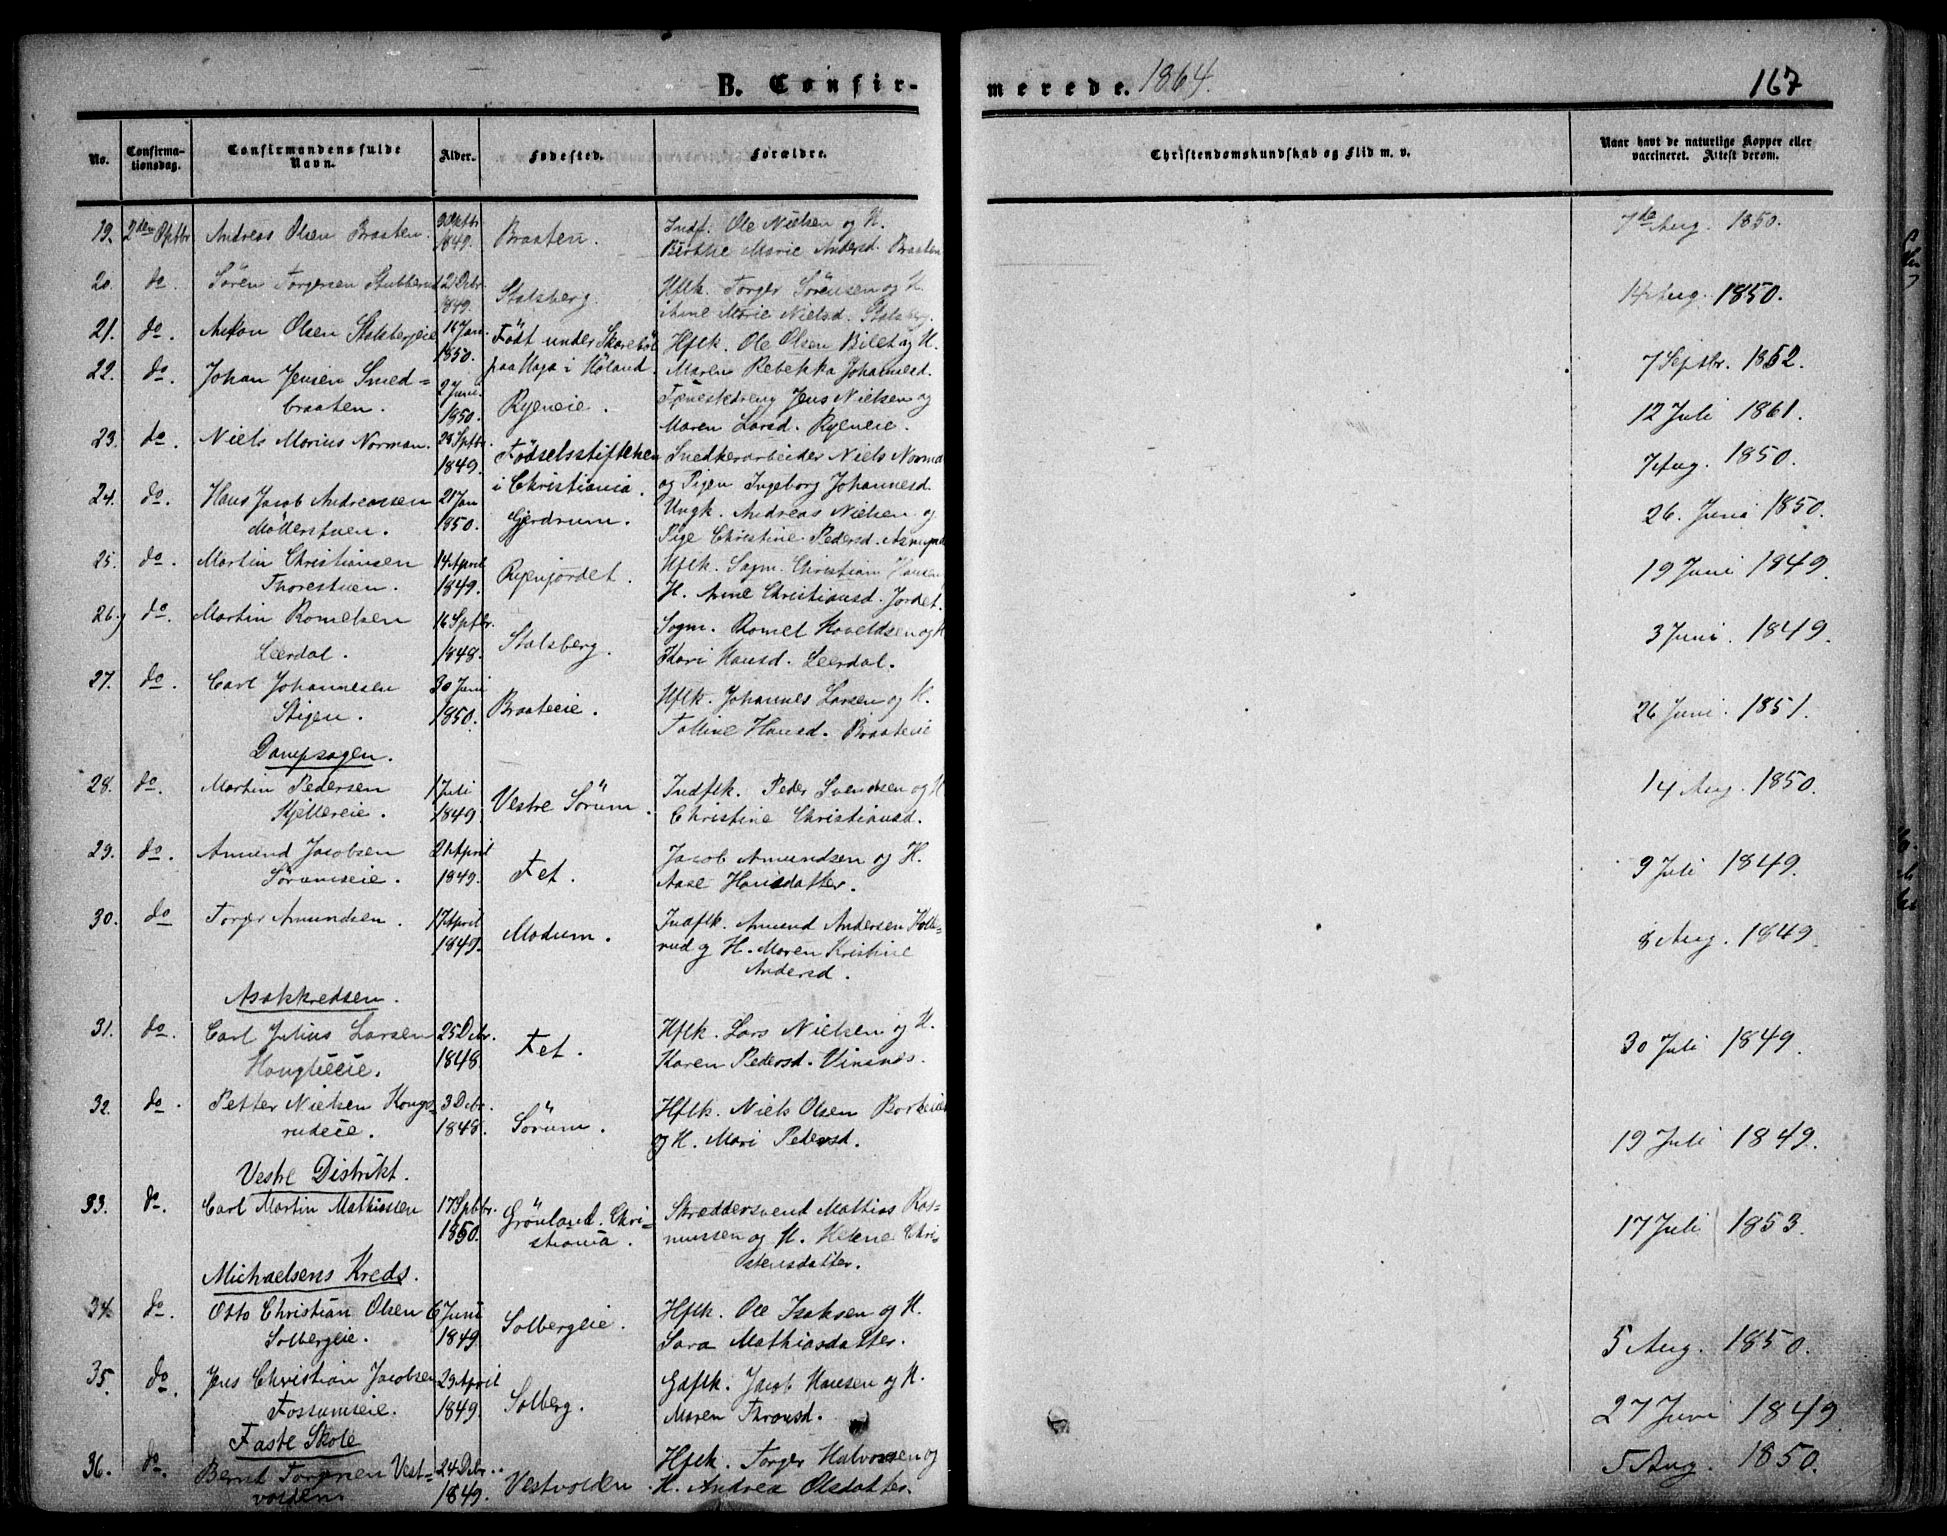 B. Confirmerede. 1864.
167
No.
Confirmationsdag.
Confirmandens fulde Navn.
Alder.
Fødested.
Forældre.
Christendomskundskab og Flid m. v.
Naar havt de naturlige Kopper eller vaccineret. Attest derom.
19. 2den Andreas Olsen Braaten. 1849. Braaten. Indf. Ole Nielsen og H. Berthe Marie Andersd. Braaten 7de Aug. 1850.
20. do. Sören Torgersen 21 Debr 1849. Stalsberg. Hflk. Torger Sörensen og H. Anne Marie Nielsd. Stalsberg. 14 Aug. 1850.
21. do. Anton Olsen Stalsbergeie 16 Jan. 1850. Födt under paa Haga i Höland. Hflk. Ole Olsen Bilet og H. Maren Rebekka Johannesd. 7 Septbr. 1852.
22. do. Johan Jensen Smedbraaten. 2 Juni 1850. Ryeneie. Tjenestedreng Jens Nielsen og Maren Larsd. Ryeneie. 12 Juli 1861.
23. do. Niels Marius Norman. Sptbr. 1849. Födselsstiftelsen i Christiania. Snedkerarbeider Niels Norman og Pigen Ingeborg Johannesd. 7 Aug. 1850.
24. do. Hans Jacob Andreassen 21 Jan 1850. Gjerdrum. Ungk. Andreas Nielsen og Pige Christine Pedersd. 26. Juni 1850.
25. do. Martin Christiansen Thorestuen. 14 April 1849. Ryenjordet. Hflk. Sagm. Christian Hansen H. Anne Christiansd. Jordet. 19 Juni 1849.
26. do. Martin Romelsen Leerdal. 16 Sptbr. 1848. Stalsberg. Sagm. Romel og H Kari Hansd. Leerdal. 3 Juni 1849.
27. do. Carl Johannesen Stigen. 30 Juni 1850. Braateeie. Hflk. Johannes Larsen og H. Talline Hansd. Braateeie 26 Juni 1851.
Dampsagen.
28. do. Martin Pedersen Kjellereie. 1 Juli 1849. Vestre Sörum. Indflk. Peder Svendsen og H Christine Christiansd. 14 Aug. 1850.
29. do. Amund Jacobsen Sörumseie. 21 April 1849. Fet. Jacob Amundsen og H. Aase Hansdatter. 9 Juli 1849.
30. do Torger Amundsen. 17 April 1849. Modum. Indflk. Amund Andersen og H. Maren Kristine Andersd. 8 Aug. 1849.
Asakkredsen.
31. do. Carl Julius Larsen 25 Debr. 1848. Fet. Hflk. Lars Nielsen og H. Karen Pedersd. Vinsnæs. 30 Juli 1849.
32. do. Petter Nielsen Kongsrudeie. 3 Debr. 1848. Sörum. Hflk. Niels Olsen og H. Mari Pedersd. 19 Juli 1849.
Vestre Distrikt.
33. do. Carl Martin Mathiassen 17 Sptbr. 1850. Grönland. Christiania. Skræddersvend Mathias Rasmussen og H. Helene Christensdatter. 17 Juli 1853.
Michaelsens Kreds.
34. do. Otto Christian Olsen Solbergeie. 6 Juni 1849. Solbergeie. Hflk. Ole Isaksen og H. Sara Mathiasdatter. 5 Aug. 1850.
35. do. Jens Christian Jacobsen Fossumseie. 29 April 1849. Solberg. Gdflk. Jacob Hansen og H. Maren Thronsd. 27 Juni 1849.
Faste Skole
36. do. Bernt Torgersen Vestvolden. 24 Debr. 1849. Vestvolden. Hflk. Torger Halvorsen og H. Andrea Olsdatter. 5 Aug. 1850.